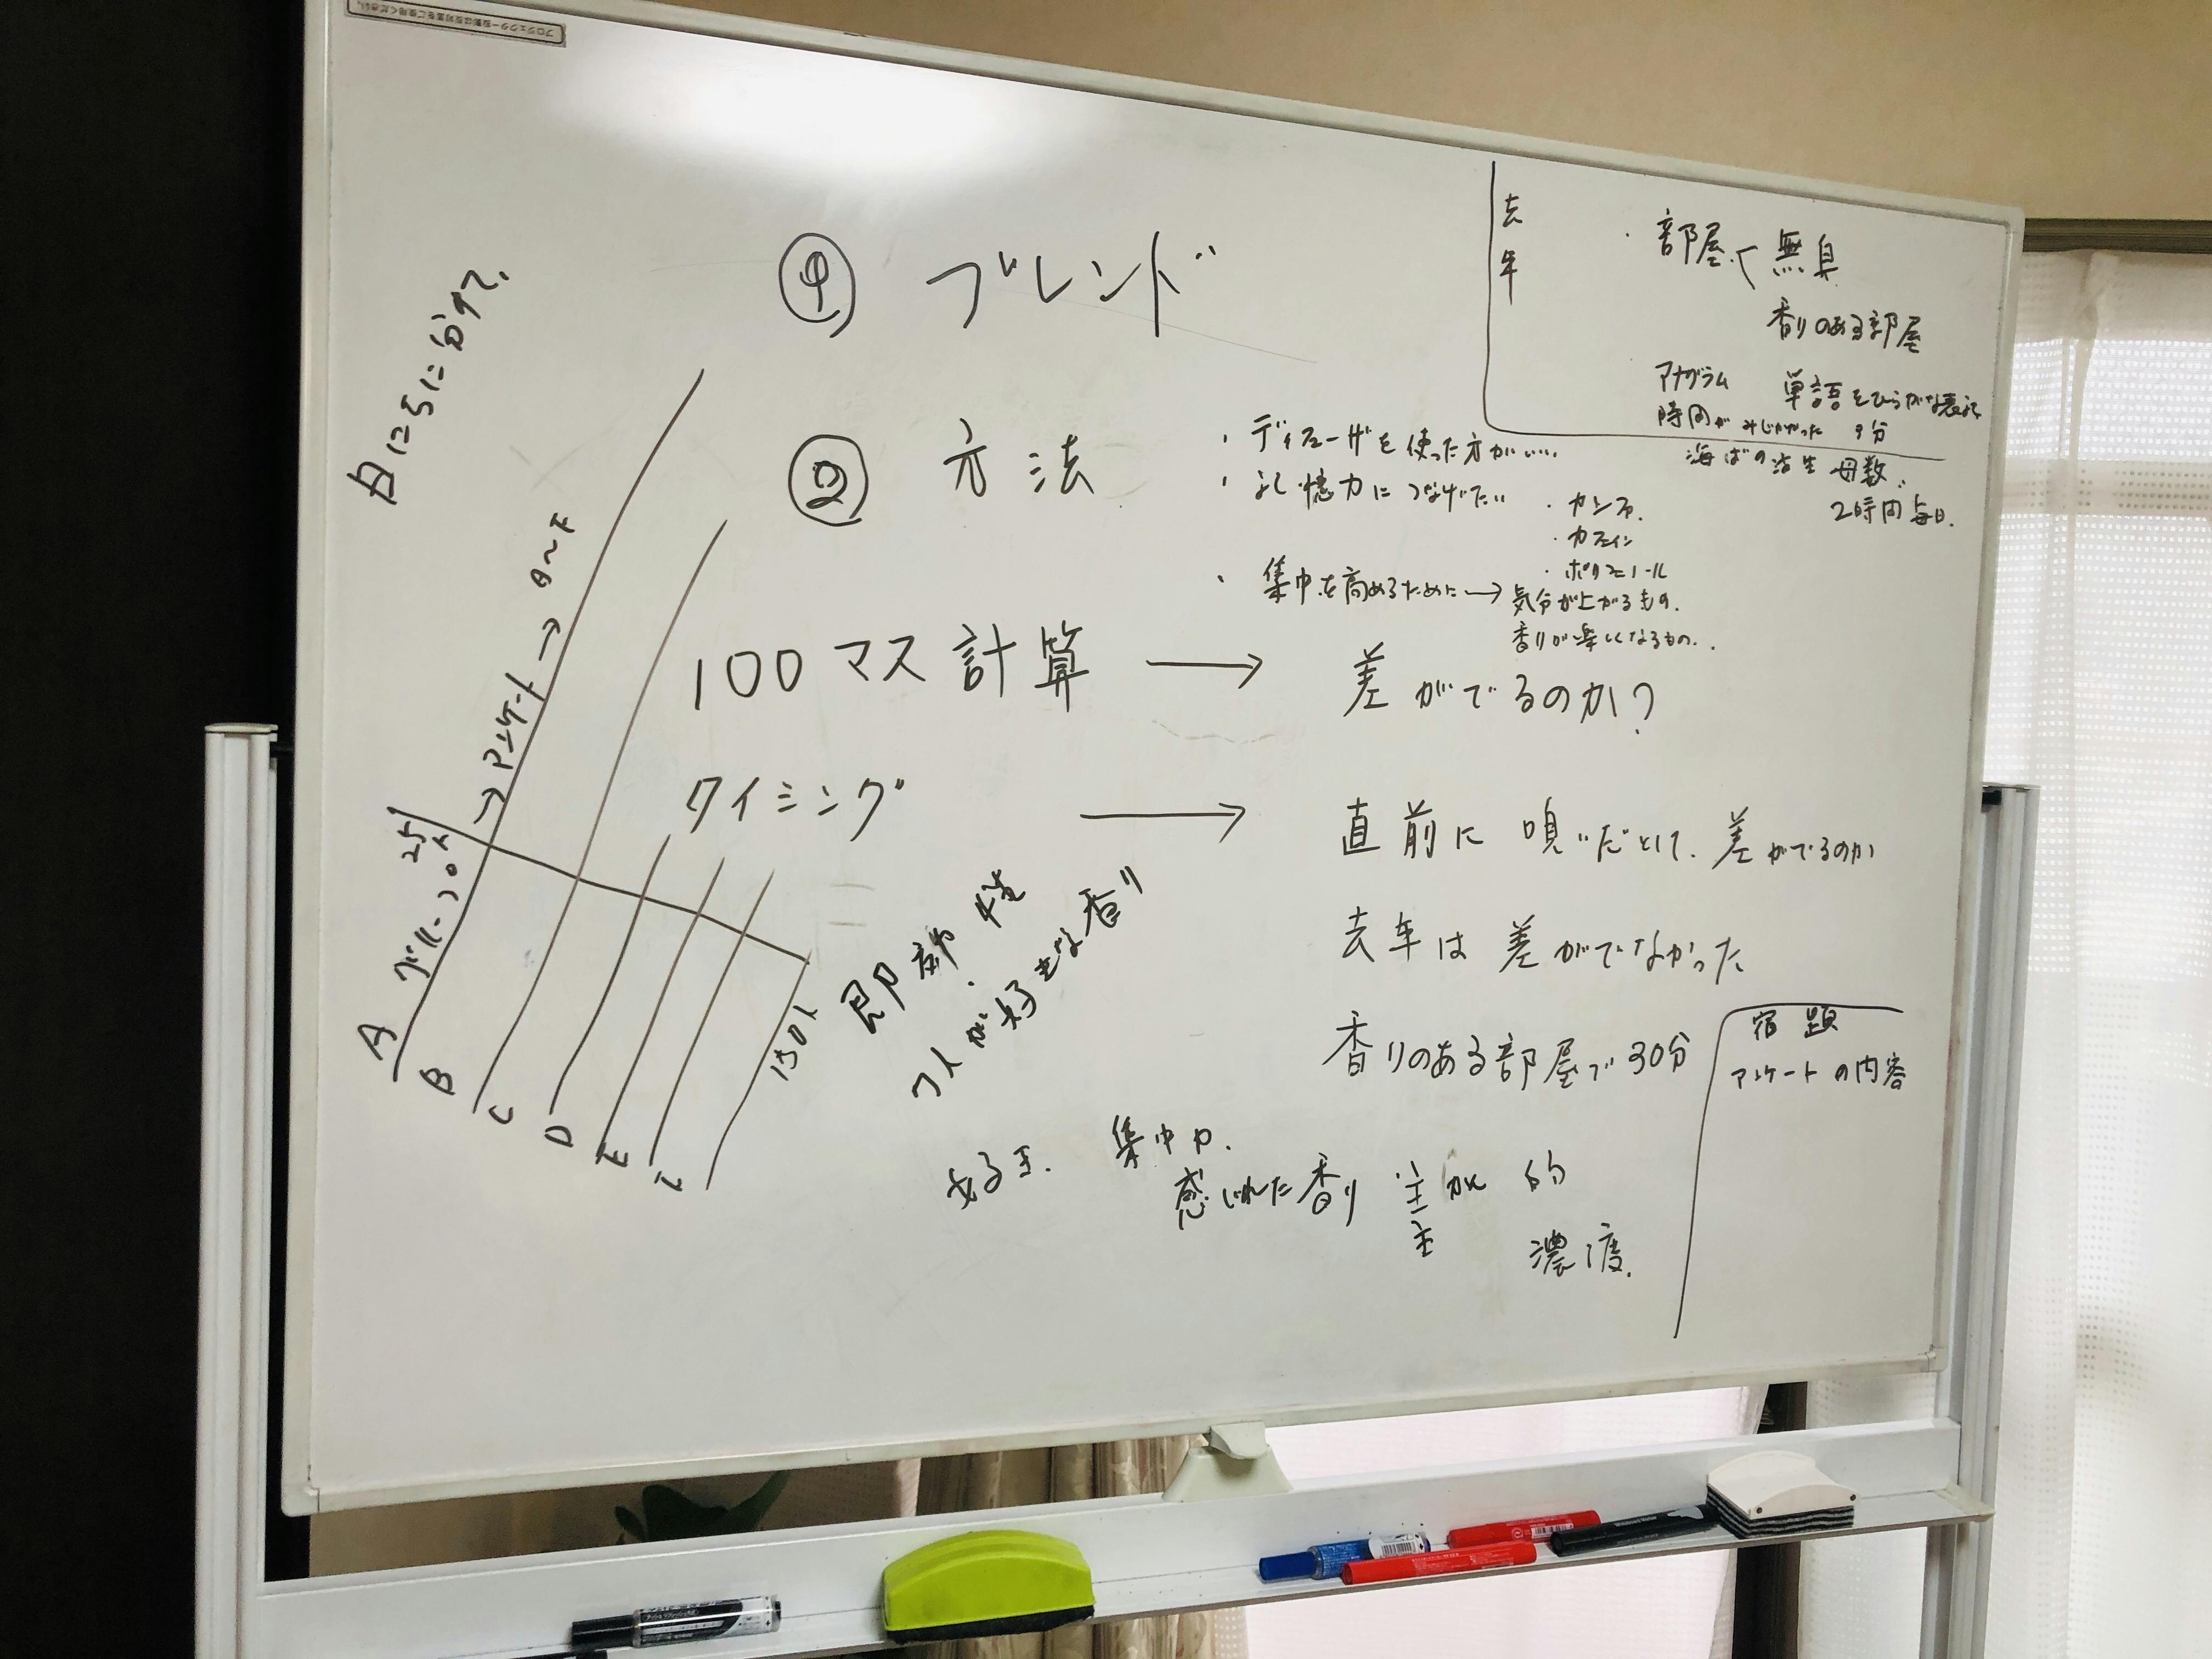 日にちに分けて、
① ブレンド
去年
・部屋で 無臭
香りのある部屋
アナグラム 単語をひらがな表示
時間がみじかかった 9分
海ばの活生 母数
2時間 毎日.
② 方法
・ディフューザを使った方がいい..
・記憶力につなげたい
・カンフル.
・カフェイン
・ポリフェノール
・集中を高めるために→気分が上がるもの.
香りが楽しくなるもの..
100マス計算 → 差がでるのか?
タイミング → 直前に嗅いだとして、差がでるのか
去年は差がでなかった
香りのある部屋で30分
宿題
アンケートの内容
25
A グループ 20人 → アンケート → A〜F
B
C
D
E
F
150人
即効性
1人が好きな香り
好き. 集中力.
感じれた香り 主観的
主
濃度.